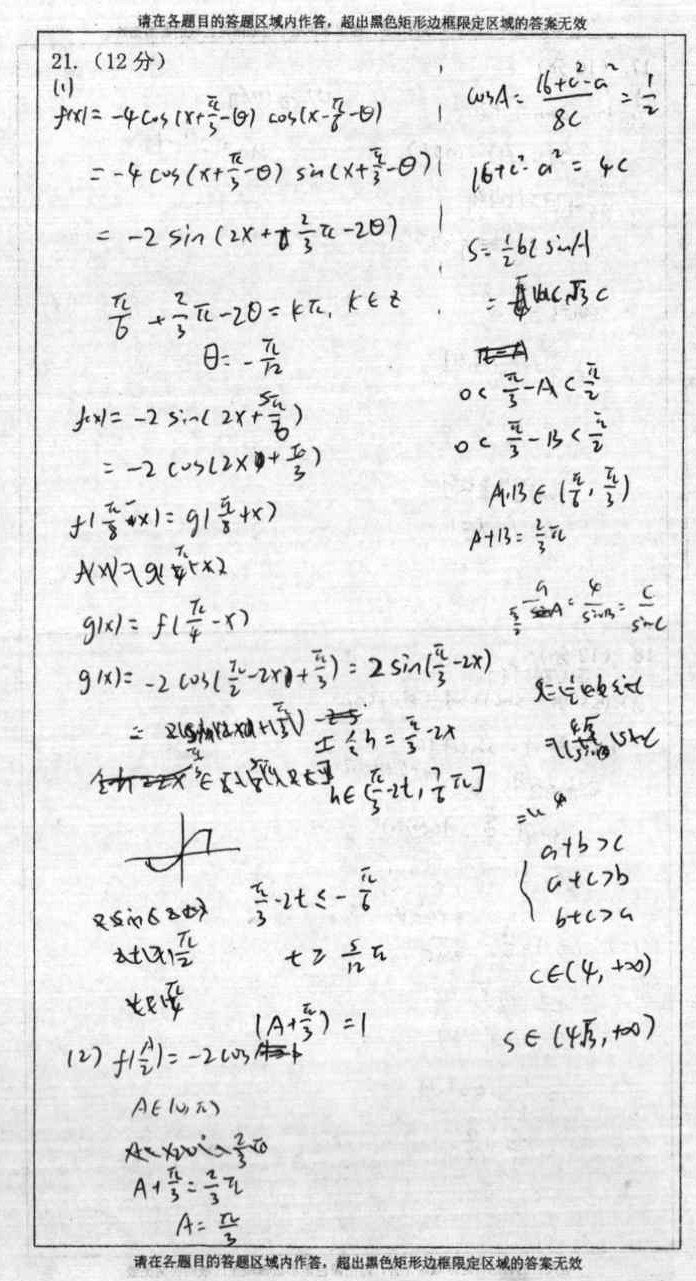 请在各题目的答题区域内作答，超出黑色矩形边框限定区域的答案无效
21.（12分）
(1)
f(x)= -4cos(x+π/3-θ) cos(x-π/6-θ)
= -4cos(x+π/3-θ) sin(x+π/3-θ)
= -2sin(2x+2/3π-2θ)
π/6+2/3π-2θ=kπ, k∈z
θ=-π/12
f(x)= -2sin(2x+5π/6)
= -2cos(2x+π/3)
f(π/8-x)=g(π/8+x)
f(x)=g(π/4-x)
g(x)=f(π/4-x)
g(x)= -2cos(π/2-2x+π/3)=2sin(π/3-2x)
令h=π/3-2x
h∈[π/3-2t, 7/6π]
π/3-2t≤-π/6
t≥5/12π
(2) f(A/2)= -2cos(A+π/3)=1
A∈(0,π)
A+π/3=2/3π
A=π/3
cosA=(16+c²-a²)/8c=1/2
16+c²-a²=4c
S=1/2bc sinA
=√3c
0<π/3-A<π/2
0<π/3-B<π/2
A,B∈(π/6,π/3)
A+B=2/3π
=4/sinB=c/sinC
a+b>c
a+c>b
b+c>a
c∈(4,+∞)
S∈(4√3,+∞)
请在各题目的答题区域内作答，超出黑色矩形边框限定区域的答案无效